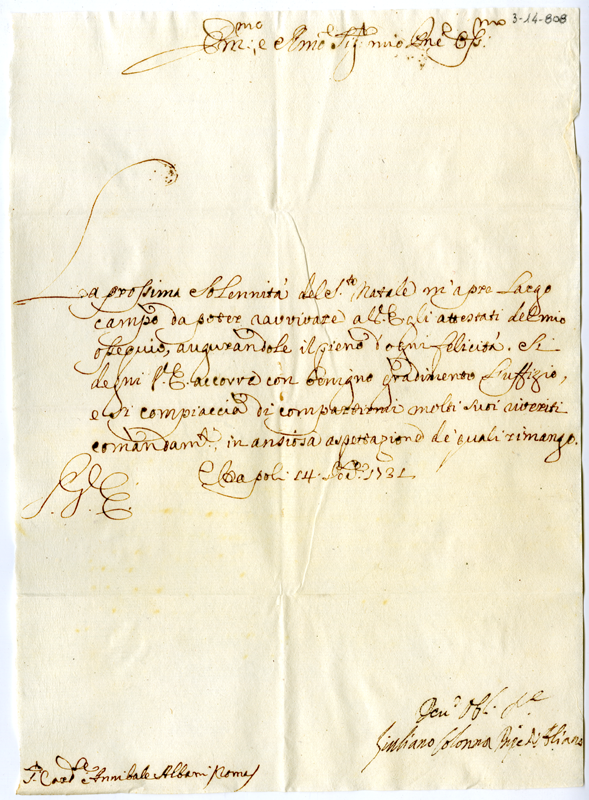 3-14-808
Em:mo e Rmo Sig:re mio Pne Oss:mo
La prossima Solennità del S.te Natale m'apre Largo
campo da poter ravvivare all'E. gli attestati del mio
ossequio, augurandole il pieno d'ogni felicità. Si
degni V.E. accorre con benigno gradimento l'uffizio,
e si compiaccia di compartirmi molti suoi riveriti
comandam.ti, in ansiosa aspettazione de' quali rimango.
Napoli 14 1731
Giuliano Colonna Pnpe di Aliano
Card.le Annibale Albani Roma